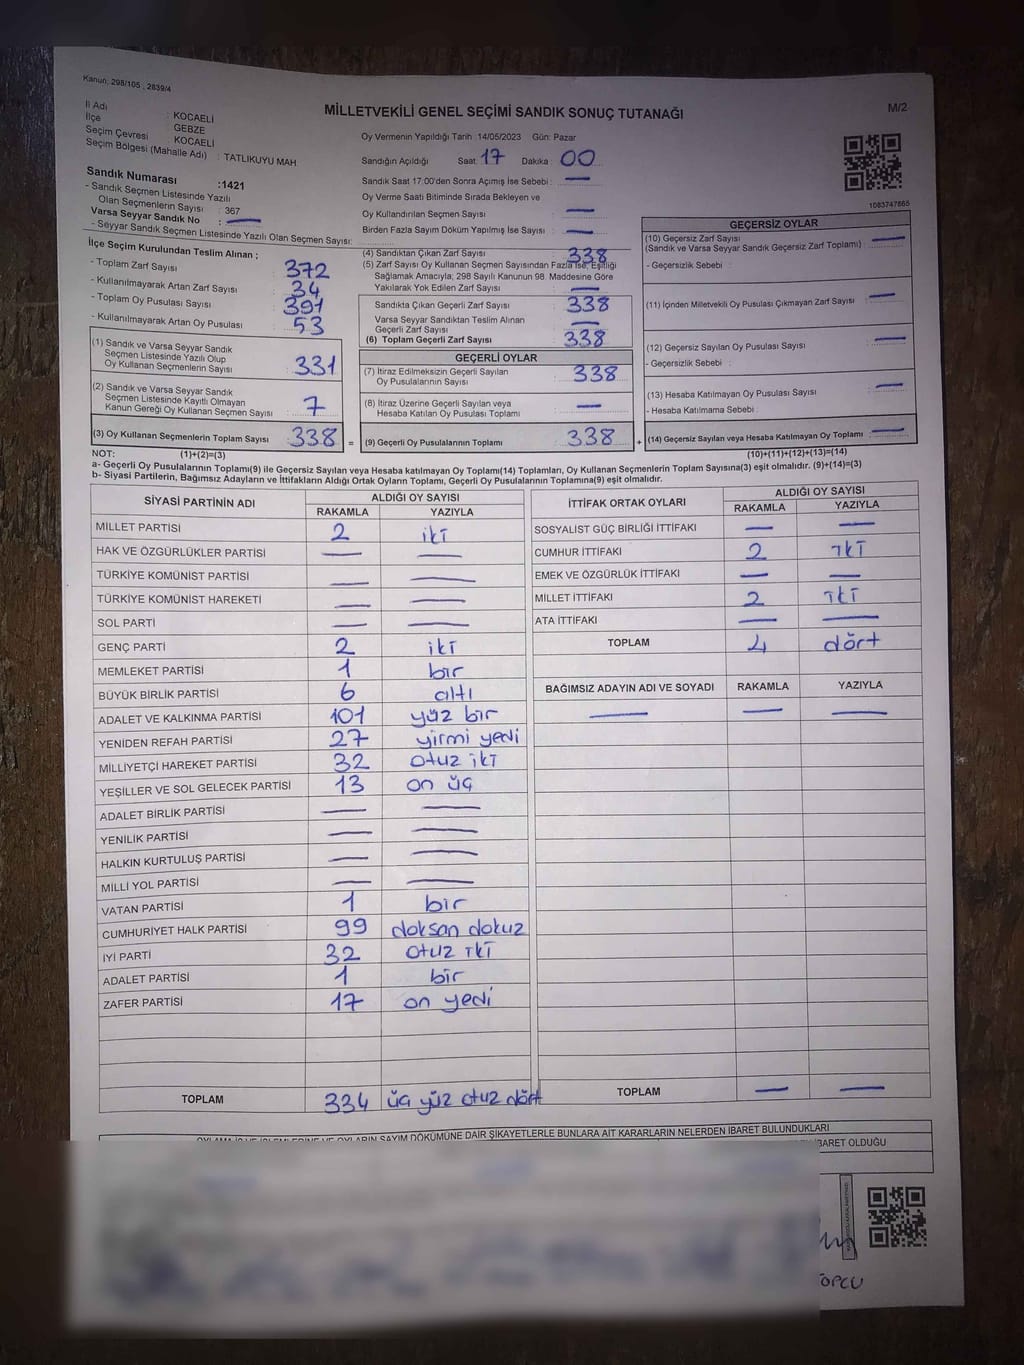 Kanun; 298/105 , 2839/4
MİLLETVEKİLİ GENEL SEÇİMİ SANDIK SONUÇ TUTANAĞI
M/2
İl Adı : KOCAELİ
İlçe : GEBZE
Seçim Çevresi : KOCAELİ
Seçim Bölgesi (Mahalle Adı) : TATLIKUYU MAH
Sandık Numarası :1421
- Sandık Seçmen Listesinde Yazılı
Olan Seçmenlerin Sayısı : 367
Varsa Seyyar Sandık No : —
- Seyyar Sandık Seçmen Listesinde Yazılı Olan Seçmen Sayısı:
Oy Vermenin Yapıldığı Tarih :14/05/2023 Gün: Pazar
Sandığın Açıldığı Saat: 17 Dakika : 00
Sandık Saat 17:00'den Sonra Açımış İse Sebebi : —
Oy Verme Saati Bitiminde Sırada Bekleyen ve
Oy Kullandırılan Seçmen Sayısı : —
Birden Fazla Sayım Döküm Yapılmış İse Sayısı : —
1083747865
İlçe Seçim Kurulundan Teslim Alınan ;
- Toplam Zarf Sayısı : 372
- Kullanılmayarak Artan Zarf Sayısı : 34
- Toplam Oy Pusulası Sayısı : 391
- Kullanılmayarak Artan Oy Pusulası : 53
(1) Sandık ve Varsa Seyyar Sandık
Seçmen Listesinde Yazılı Olup
Oy Kullanan Seçmenlerin Sayısı 331
(2) Sandık ve Varsa Seyyar Sandık
Seçmen Listesinde Kayıtlı Olmayan
Kanun Gereği Oy Kullanan Seçmen Sayısı 7
(3) Oy Kullanan Seçmenlerin Toplam Sayısı 338 =
(4) Sandıktan Çıkan Zarf Sayısı 338
(5) Zarf Sayısı Oy Kullanan Seçmen Sayısından Fazla İse, Eşitliği
Sağlamak Amacıyla, 298 Sayılı Kanunun 98. Maddesine Göre
Yakılarak Yok Edilen Zarf Sayısı —
Sandıkta Çıkan Geçerli Zarf Sayısı 338
Varsa Seyyar Sandıktan Teslim Alınan
Geçerli Zarf Sayısı —
(6) Toplam Geçerli Zarf Sayısı 338
GEÇERLİ OYLAR
(7) İtiraz Edilmeksizin Geçerli Sayılan
Oy Pusulalarının Sayısı 338
(8) İtiraz Üzerine Geçerli Sayılan veya
Hesaba Katılan Oy Pusulası Toplamı —
(9) Geçerli Oy Pusulalarının Toplamı 338 +
GEÇERSİZ OYLAR
(10) Geçersiz Zarf Sayısı —
(Sandık ve Varsa Seyyar Sandık Geçersiz Zarf Toplamı)
- Geçersizlik Sebebi :
(11) İçinden Milletvekili Oy Pusulası Çıkmayan Zarf Sayısı —
(12) Geçersiz Sayılan Oy Pusulası Sayısı —
- Geçersizlik Sebebi :
(13) Hesaba Katılmayan Oy Pusulası Sayısı —
- Hesaba Katılmama Sebebi :
(14) Geçersiz Sayılan veya Hesaba Katılmayan Oy Toplamı —
NOT: (1)+(2)=(3) (10)+(11)+(12)+(13)=(14)
a- Geçerli Oy Pusulalarının Toplamı(9) ile Geçersiz Sayılan veya Hesaba katılmayan Oy Toplamı(14) Toplamları, Oy Kullanan Seçmenlerin Toplam Sayısına(3) eşit olmalıdır. (9)+(14)=(3)
b- Siyasi Partilerin, Bağımsız Adayların ve İttifakların Aldığı Ortak Oyların Toplamı, Geçerli Oy Pusulalarının Toplamına(9) eşit olmalıdır.
SİYASİ PARTİNİN ADI ALDIĞI OY SAYISI
RAKAMLA YAZIYLA
MİLLET PARTİSİ 2 iki
HAK VE ÖZGÜRLÜKLER PARTİSİ — —
TÜRKİYE KOMÜNİST PARTİSİ — —
TÜRKİYE KOMÜNİST HAREKETİ — —
SOL PARTİ — —
GENÇ PARTİ 2 iki
MEMLEKET PARTİSİ 1 bir
BÜYÜK BİRLİK PARTİSİ 6 altı
ADALET VE KALKINMA PARTİSİ 101 yüz bir
YENİDEN REFAH PARTİSİ 27 yirmi yedi
MİLLİYETÇİ HAREKET PARTİSİ 32 otuz iki
YEŞİLLER VE SOL GELECEK PARTİSİ 13 on üç
ADALET BİRLİK PARTİSİ — —
YENİLİK PARTİSİ — —
HALKIN KURTULUŞ PARTİSİ — —
MİLLİ YOL PARTİSİ — —
VATAN PARTİSİ 1 bir
CUMHURİYET HALK PARTİSİ 99 doksan dokuz
İYİ PARTİ 32 otuz iki
ADALET PARTİSİ 1 bir
ZAFER PARTİSİ 17 on yedi
TOPLAM 334 üç yüz otuz dört
İTTİFAK ORTAK OYLARI ALDIĞI OY SAYISI
RAKAMLA YAZIYLA
SOSYALİST GÜÇ BİRLİĞİ İTTİFAKI — —
CUMHUR İTTİFAKI 2 iki
EMEK VE ÖZGÜRLÜK İTTİFAKI — —
MİLLET İTTİFAKI 2 iki
ATA İTTİFAKI — —
TOPLAM 4 dört
BAĞIMSIZ ADAYIN ADI VE SOYADI RAKAMLA YAZIYLA
— — —
TOPLAM — —
SAYIM DÖKÜMÜNE DAİR ŞİKAYETLERLE BUNLARA AİT KARARLARIN NELERDEN İBARET BULUNDUKLARI
İBARET OLDUĞU
TOPCU